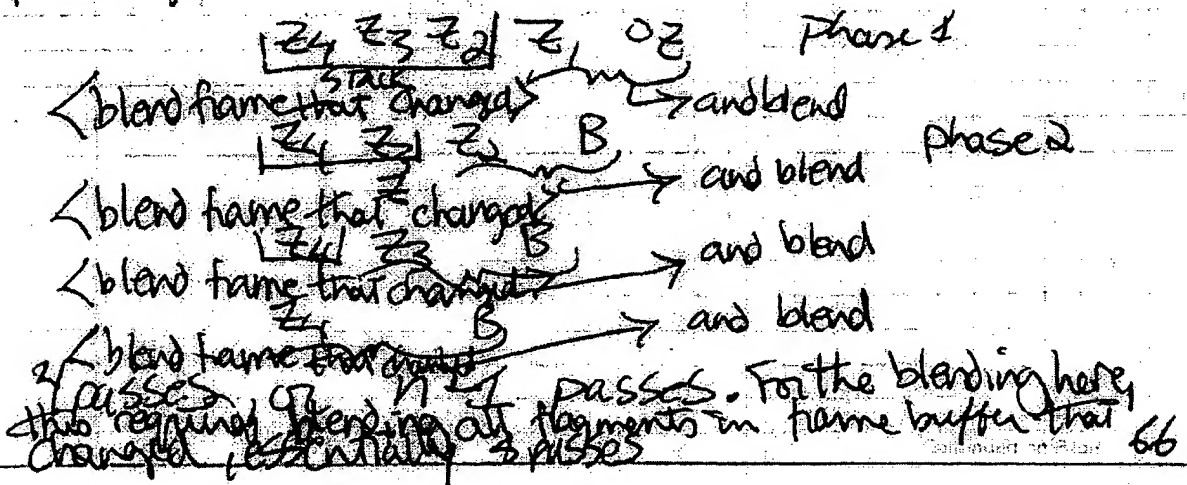 Z4 Z3 Z2 Z1 OZ Phase 1
stack
<blend frame that changed> and blend
Z4 Z3 Z2 B phase 2
<blend frame that changed> and blend
Z4 Z3 B
<blend frame that changed> and blend
Z4 B and blend
<blend frame that changed
passes, or n-1 passes. For the blending here,
this required blending all fragments in frame buffer that
changed, essentially passes
66